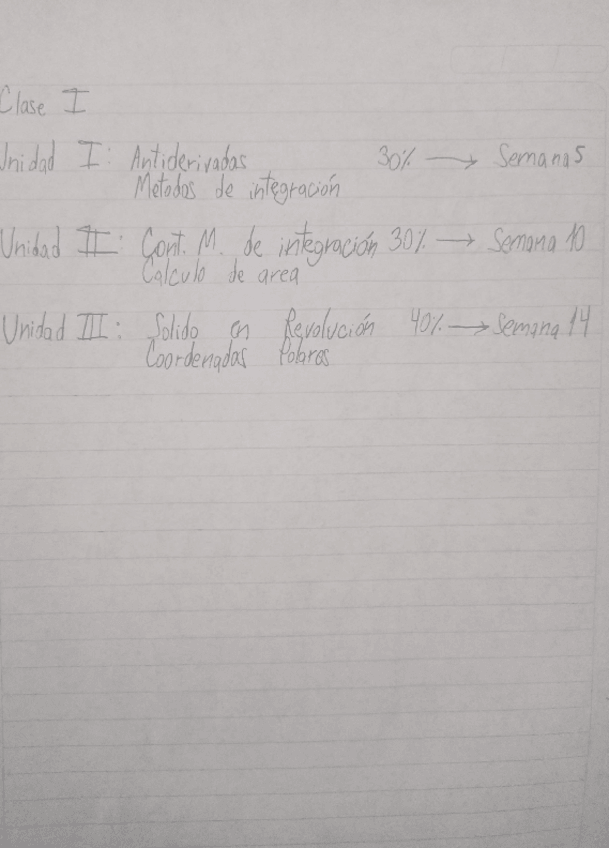 Clase I
Unidad I: Antiderivadas 30% → Semana 5
Metodos de integración
Unidad II: Cont. M. de integración 30% → Semana 10
Calculo de area
Unidad III: Solido en Revolución 40% → Semana 14
Coordenadas Polares